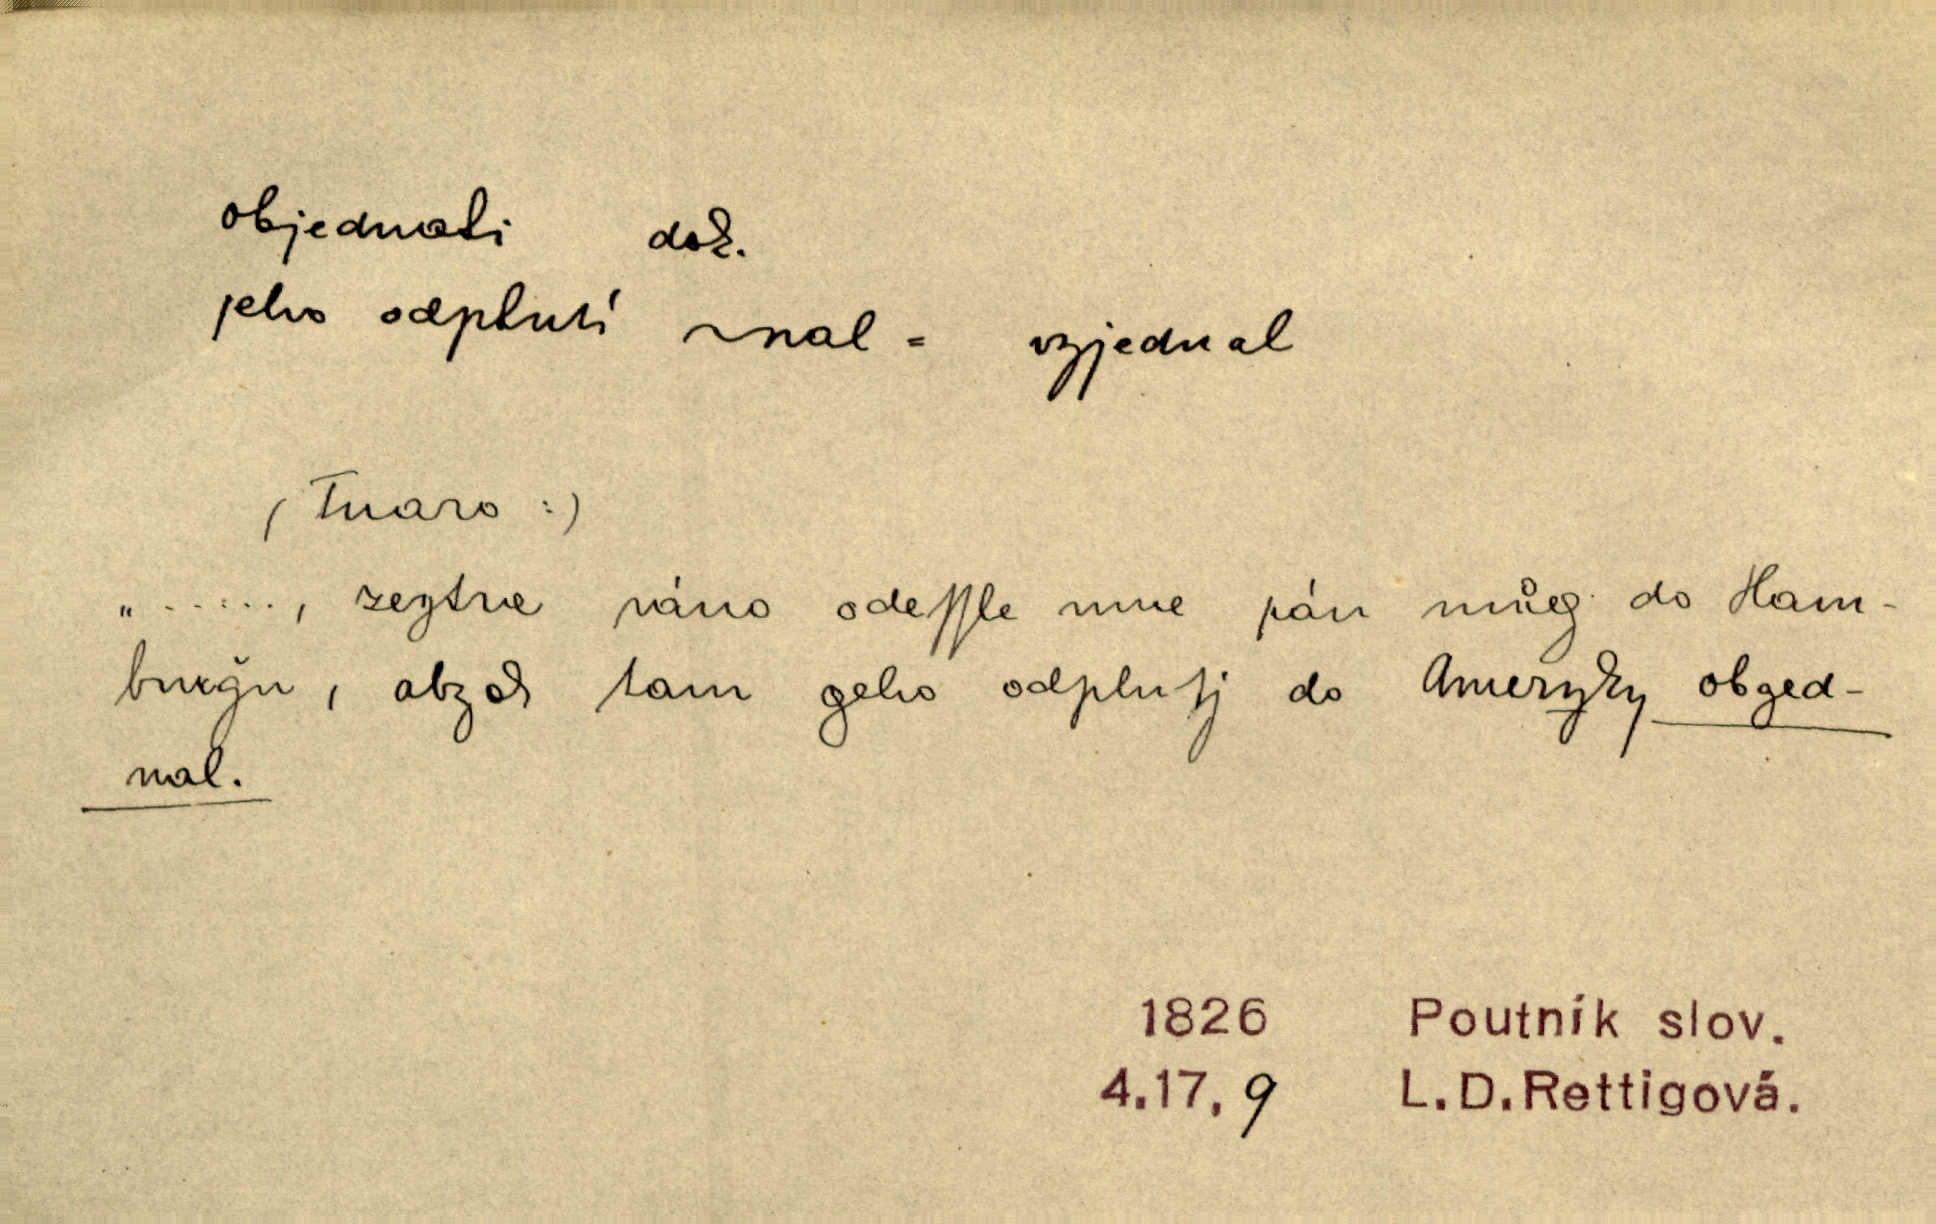 objednati dok.
jeho odplutí ~nal = vyjednal
(Tnaro :)
„ ......, zeytra ráno odeſſle mne pán můg do Ham-
burgu, abych tam geho odplutj do Ameryky obged-
nal.
1826 Poutník slov.
4.17, 9 L.D.Rettigová.